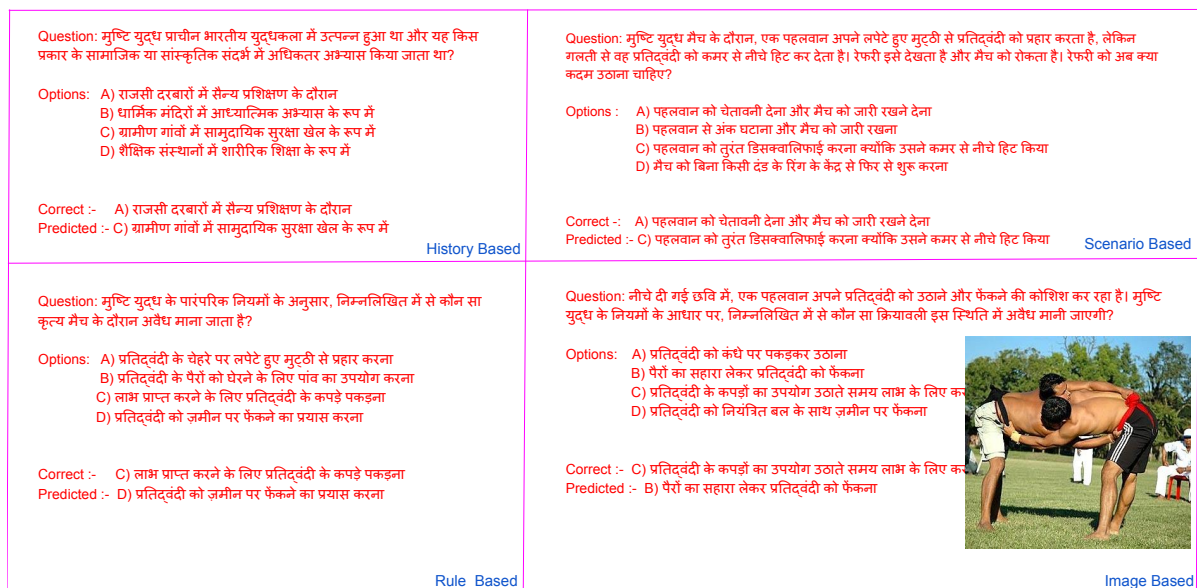 Question: मुष्टि युद्ध प्राचीन भारतीय युद्धकला में उत्पन्न हुआ था और यह किस
प्रकार के सामाजिक या सांस्कृतिक संदर्भ में अधिकतर अभ्यास किया जाता था?
Options: A) राजसी दरबारों में सैन्य प्रशिक्षण के दौरान
B) धार्मिक मंदिरों में आध्यात्मिक अभ्यास के रूप में
C) ग्रामीण गांवों में सामुदायिक सुरक्षा खेल के रूप में
D) शैक्षिक संस्थानों में शारीरिक शिक्षा के रूप में
Correct :- A) राजसी दरबारों में सैन्य प्रशिक्षण के दौरान
Predicted :- C) ग्रामीण गांवों में सामुदायिक सुरक्षा खेल के रूप में
History Based
Question: मुष्टि युद्ध मैच के दौरान, एक पहलवान अपने लपेटे हुए मुट्ठी से प्रतिद्वंदी को प्रहार करता है, लेकिन
गलती से वह प्रतिद्वंदी को कमर से नीचे हिट कर देता है। रेफरी इसे देखता है और मैच को रोकता है। रेफरी को अब क्या
कदम उठाना चाहिए?
Options : A) पहलवान को चेतावनी देना और मैच को जारी रखने देना
B) पहलवान से अंक घटाना और मैच को जारी रखना
C) पहलवान को तुरंत डिसक्वालिफाई करना क्योंकि उसने कमर से नीचे हिट किया
D) मैच को बिना किसी दंड के रिंग के केंद्र से फिर से शुरू करना
Correct -: A) पहलवान को चेतावनी देना और मैच को जारी रखने देना
Predicted :- C) पहलवान को तुरंत डिसक्वालिफाई करना क्योंकि उसने कमर से नीचे हिट किया
Scenario Based
Question: मुष्टि युद्ध के पारंपरिक नियमों के अनुसार, निम्नलिखित में से कौन सा
कृत्य मैच के दौरान अवैध माना जाता है?
Options: A) प्रतिद्वंदी के चेहरे पर लपेटे हुए मुट्ठी से प्रहार करना
B) प्रतिद्वंदी के पैरों को घेरने के लिए पांव का उपयोग करना
C) लाभ प्राप्त करने के लिए प्रतिद्वंदी के कपड़े पकड़ना
D) प्रतिद्वंदी को ज़मीन पर फेंकने का प्रयास करना
Correct :- C) लाभ प्राप्त करने के लिए प्रतिद्वंदी के कपड़े पकड़ना
Predicted :- D) प्रतिद्वंदी को ज़मीन पर फेंकने का प्रयास करना
Rule Based
Question: नीचे दी गई छवि में, एक पहलवान अपने प्रतिद्वंदी को उठाने और फेंकने की कोशिश कर रहा है। मुष्टि
युद्ध के नियमों के आधार पर, निम्नलिखित में से कौन सा क्रियावली इस स्थिति में अवैध मानी जाएगी?
Options: A) प्रतिद्वंदी को कंधे पर पकड़कर उठाना
B) पैरों का सहारा लेकर प्रतिद्वंदी को फेंकना
C) प्रतिद्वंदी के कपड़ों का उपयोग उठाते समय लाभ के लिए
D) प्रतिद्वंदी को नियंत्रित बल के साथ ज़मीन पर फेंकना
Correct :- C) प्रतिद्वंदी के कपड़ों का उपयोग उठाते समय लाभ के लिए
Predicted :- B) पैरों का सहारा लेकर प्रतिद्वंदी को फेंकना
Image Based